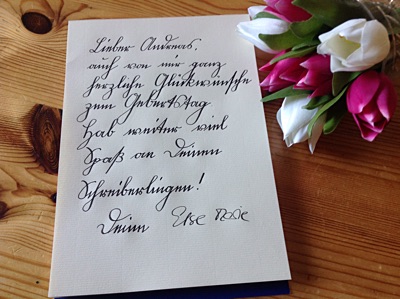 Lieber Andreas,
auch von mir ganz
herzliche Glückwünsche
zum Geburtstag
Hab weiter viel
Spaß an Deinen
Schreiberlingen!
Deine